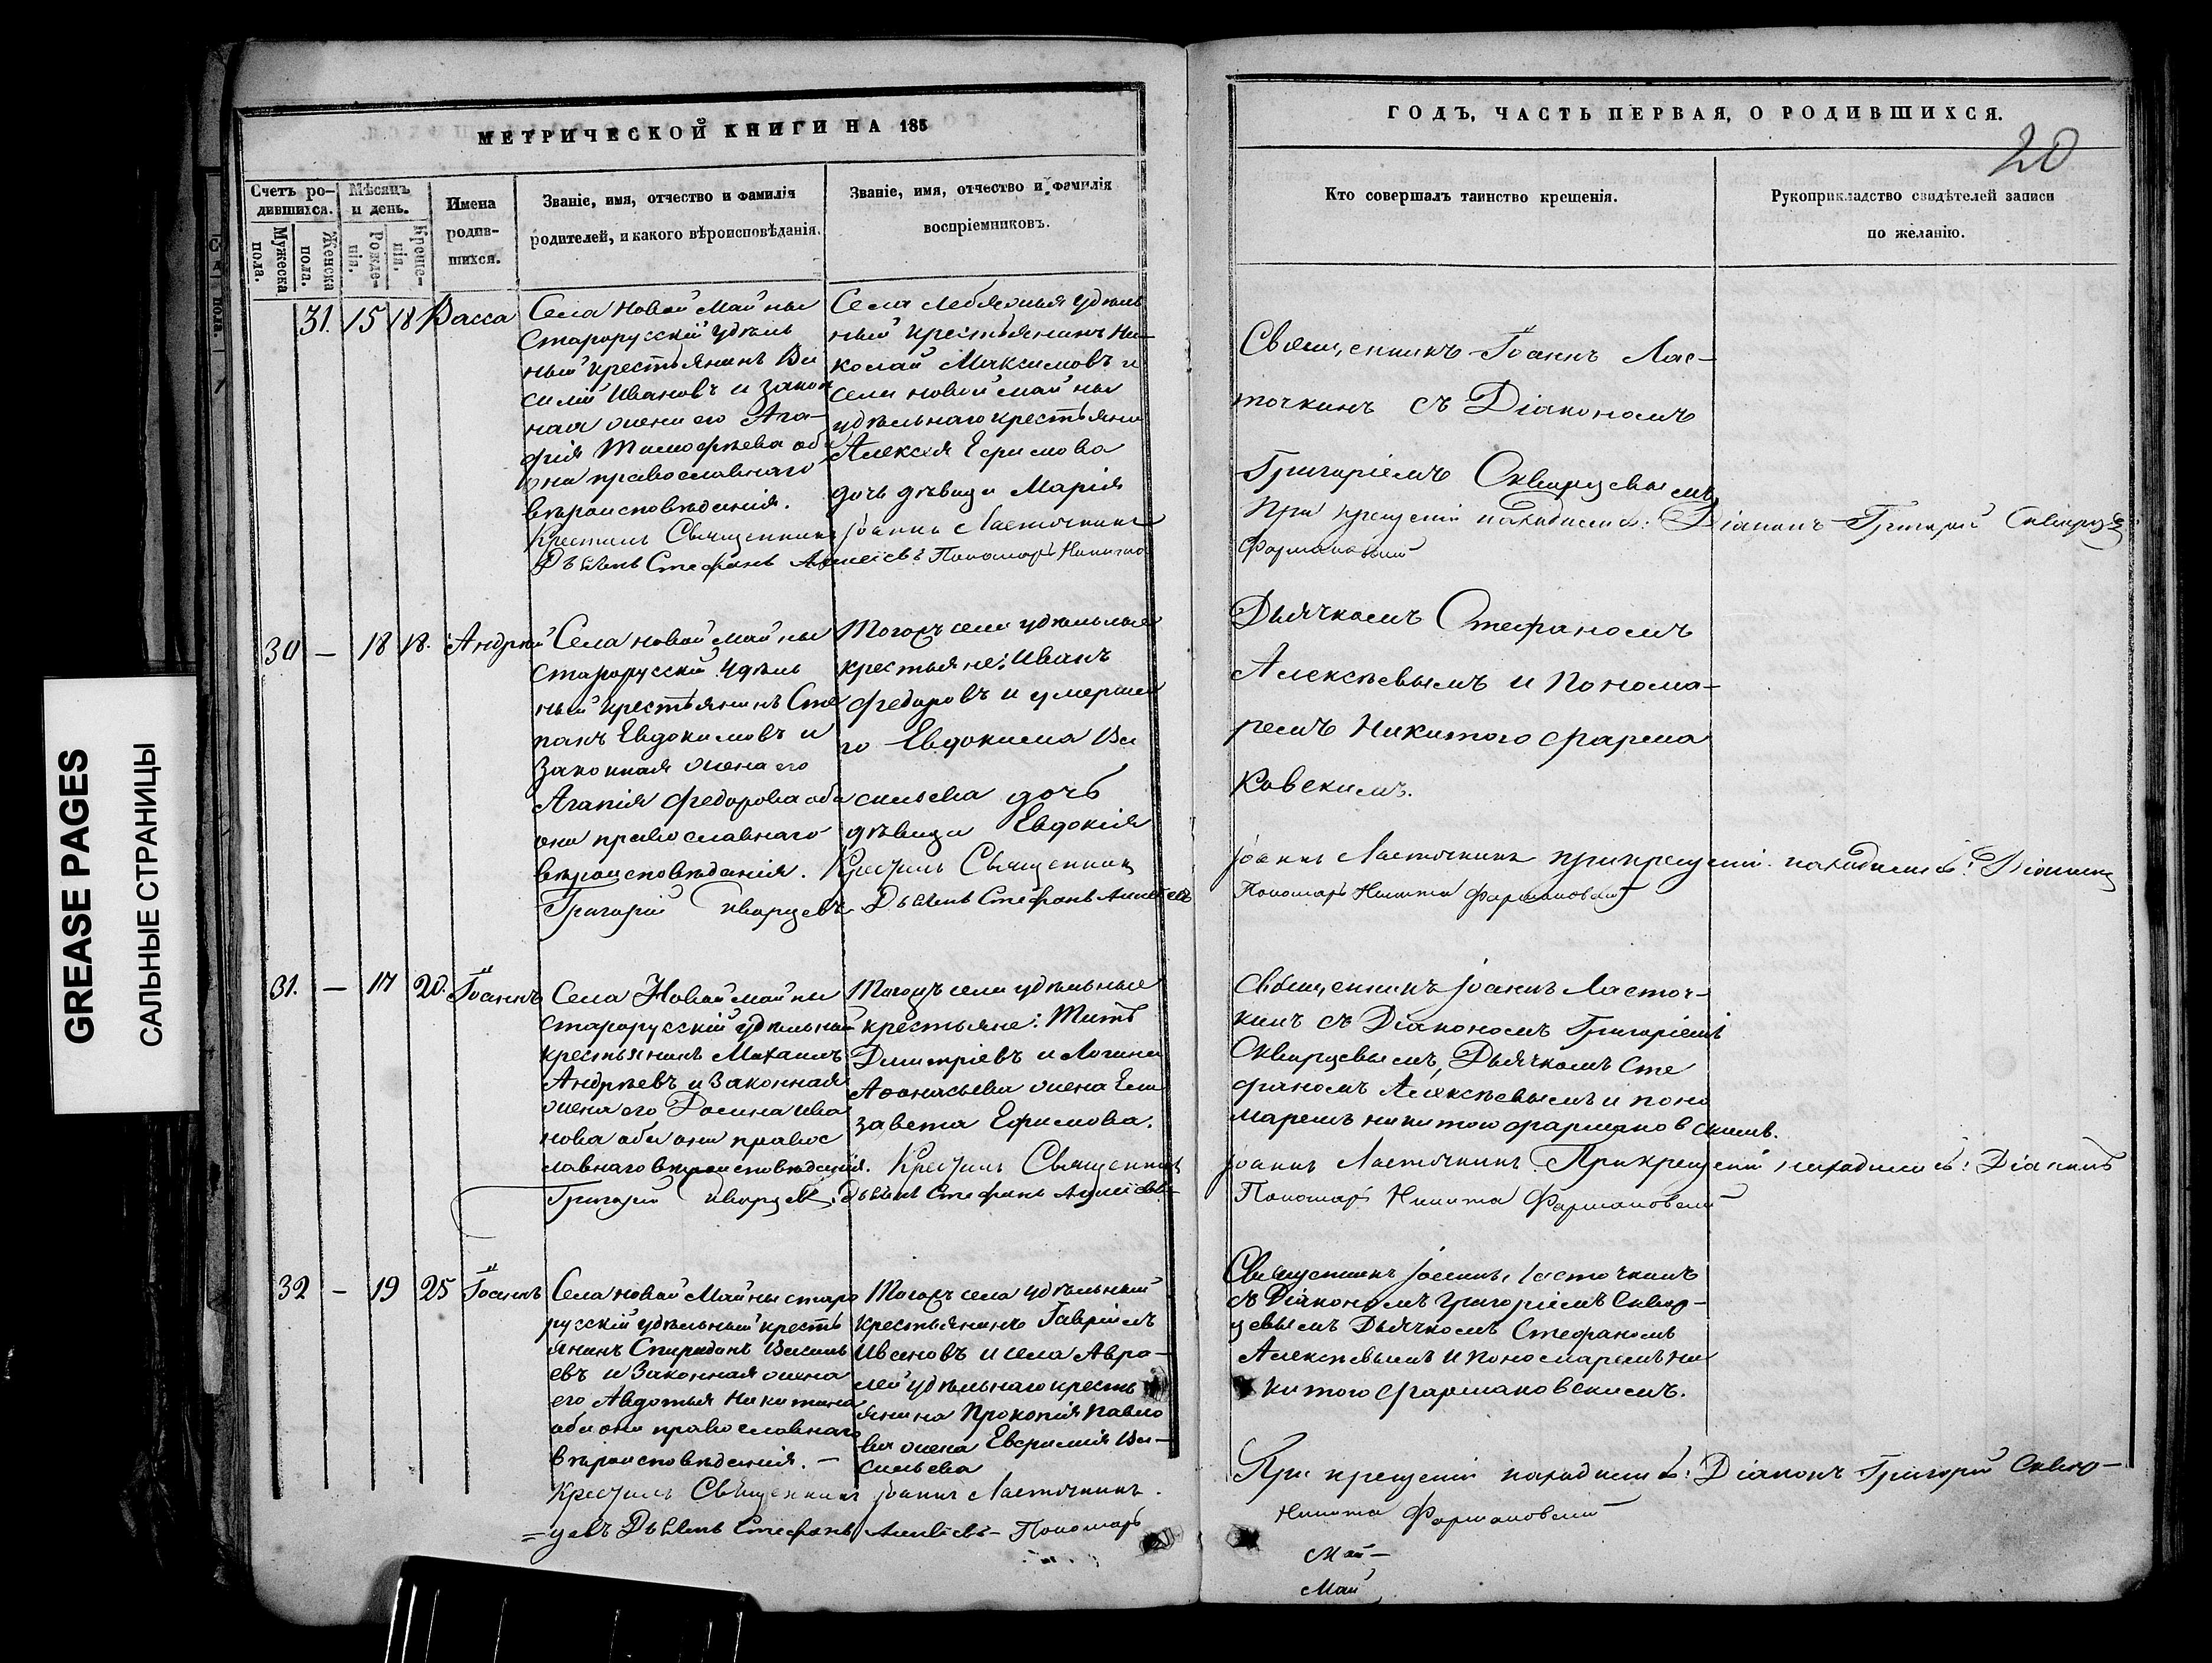 GREASE PAGES
САЛЬНЫЕ СТРАНИЦЫ
МЕТРИЧЕСКОЙ КНИГИ НА 185
Счетъ ро-
дившихся.
Мужеска
пола.
Женска
пола.
Мѣсяцъ
и день.
Рожде-
нія.
Креще-
нія.
Имена
родив-
шихся.
Званіе, имя, отчество и фамилія
родителей, и какого вѣроисповѣданія.
Званіе, имя, отчество и фамилія
воспріемниковъ.
31. 15 18 Васса
Села Новой Майны
Старорусскій удѣль
ный крестьянинъ Ва
силій Ивановъ и закон
ная жена его Ага-
фія Тимофѣева оба
они православнаго
вѣроисповѣданія.
Села Лебяжья удѣль
ный крестьянинъ Ни-
колай Максимовъ и
села новой майны
удѣльнаго крестьяни
Алексія Ефимова
дочь дѣвица Марія
Крестилъ Священникъ Іоаннъ Ласточкинъ
Дьячекъ Стефанъ Алексѣевъ Пономарь Никита
30 — 18 18. Андрей
Села новой майны
старорусскій удѣль
ный крестьянинъ Сте
панъ Евдокимовъ и
законная жена его
Агапія Федорова оба
они православнаго
вѣроисповѣданія.
Тогожъ села удѣльные
крестьяне: Иванъ
Федоровъ и умерша
го Евдокима Ва
сильева дочь
дѣвица Евдокія
Крестилъ Священникъ
Григорій Скворцевъ Дьячекъ Стефанъ Алексѣевъ
31. — 17 20. Іоаннъ
Села Новой майны
старорусскій удѣльный
крестьянинъ Михаилъ
Андрѣевъ и законная
жена его Домна Ива
нова оба они правос
лавнаго вѣроисповѣданія.
Тогожъ села удѣльные
крестьяне: Титъ
Дмитріевъ и Логина
Афонасьева жена Ели
завета Ефимова.
Крестилъ Священникъ
Григорій Скворцевъ. Дьячекъ Стефанъ Алексѣевъ
32 — 19 25 Іоаннъ
Села новой Майны старо
русскій удѣльный кресть
янинъ Спиридонъ Василь
евъ и законная жена
его Авдотья Никитина
оба они православнаго
вѣроисповѣданія. —
Тогожъ села удѣльный
крестьянинъ Гавріилъ
Ивановъ и села Авра-
лей удѣльнаго кресть
янина Прокопія Павло
ва жена Евфимія Ва-
сильева
Крестилъ Священникъ Іоаннъ Ласточкинъ.
=цевъ Дьячекъ Стефанъ Алексѣевъ — Пономарь
ГОДЪ, ЧАСТЬ ПЕРВАЯ, О РОДИВШИХСЯ.
20
Кто совершалъ таинство крещенія.
Рукоприкладство свидѣтелей записи
по желанію.
Священникъ Іоаннъ Лас-
точкинъ съ Діакономъ
Григоріемъ Скворцевымъ
При крещеніи находились: Діаконъ Григорій Скворцев
Фармаковскій
Дьячкомъ Стефаномъ
Алексѣевымъ и Понома-
ремъ Никитою Фарма
ковскимъ.
Іоаннъ Ласточкинъ при крещеніи находились: Діаконъ
Пономарь Никита Фармаковскій
Священникъ Іоаннъ Ласточ-
кинъ съ Діакономъ Григоріемъ
Скворцевымъ, Дьячкомъ Сте
фаномъ Алексѣевымъ и поно
маремъ никитою фармаковскимъ.
Іоаннъ Ласточкинъ. При крещеніи находились: Діаконъ
Пономарь Никита Фармаковскій
Священникъ Іоаннъ Ласточкинъ
съ Діакономъ Григоріемъ Сквор-
цевымъ Дьячкомъ Стефаномъ
Алексѣевымъ и пономаремъ Ни
китою Фармаковскимъ.
При крещеніи находились: Діаконъ Григорій Сквор-
Никита Фармаковскій
Май —
Май